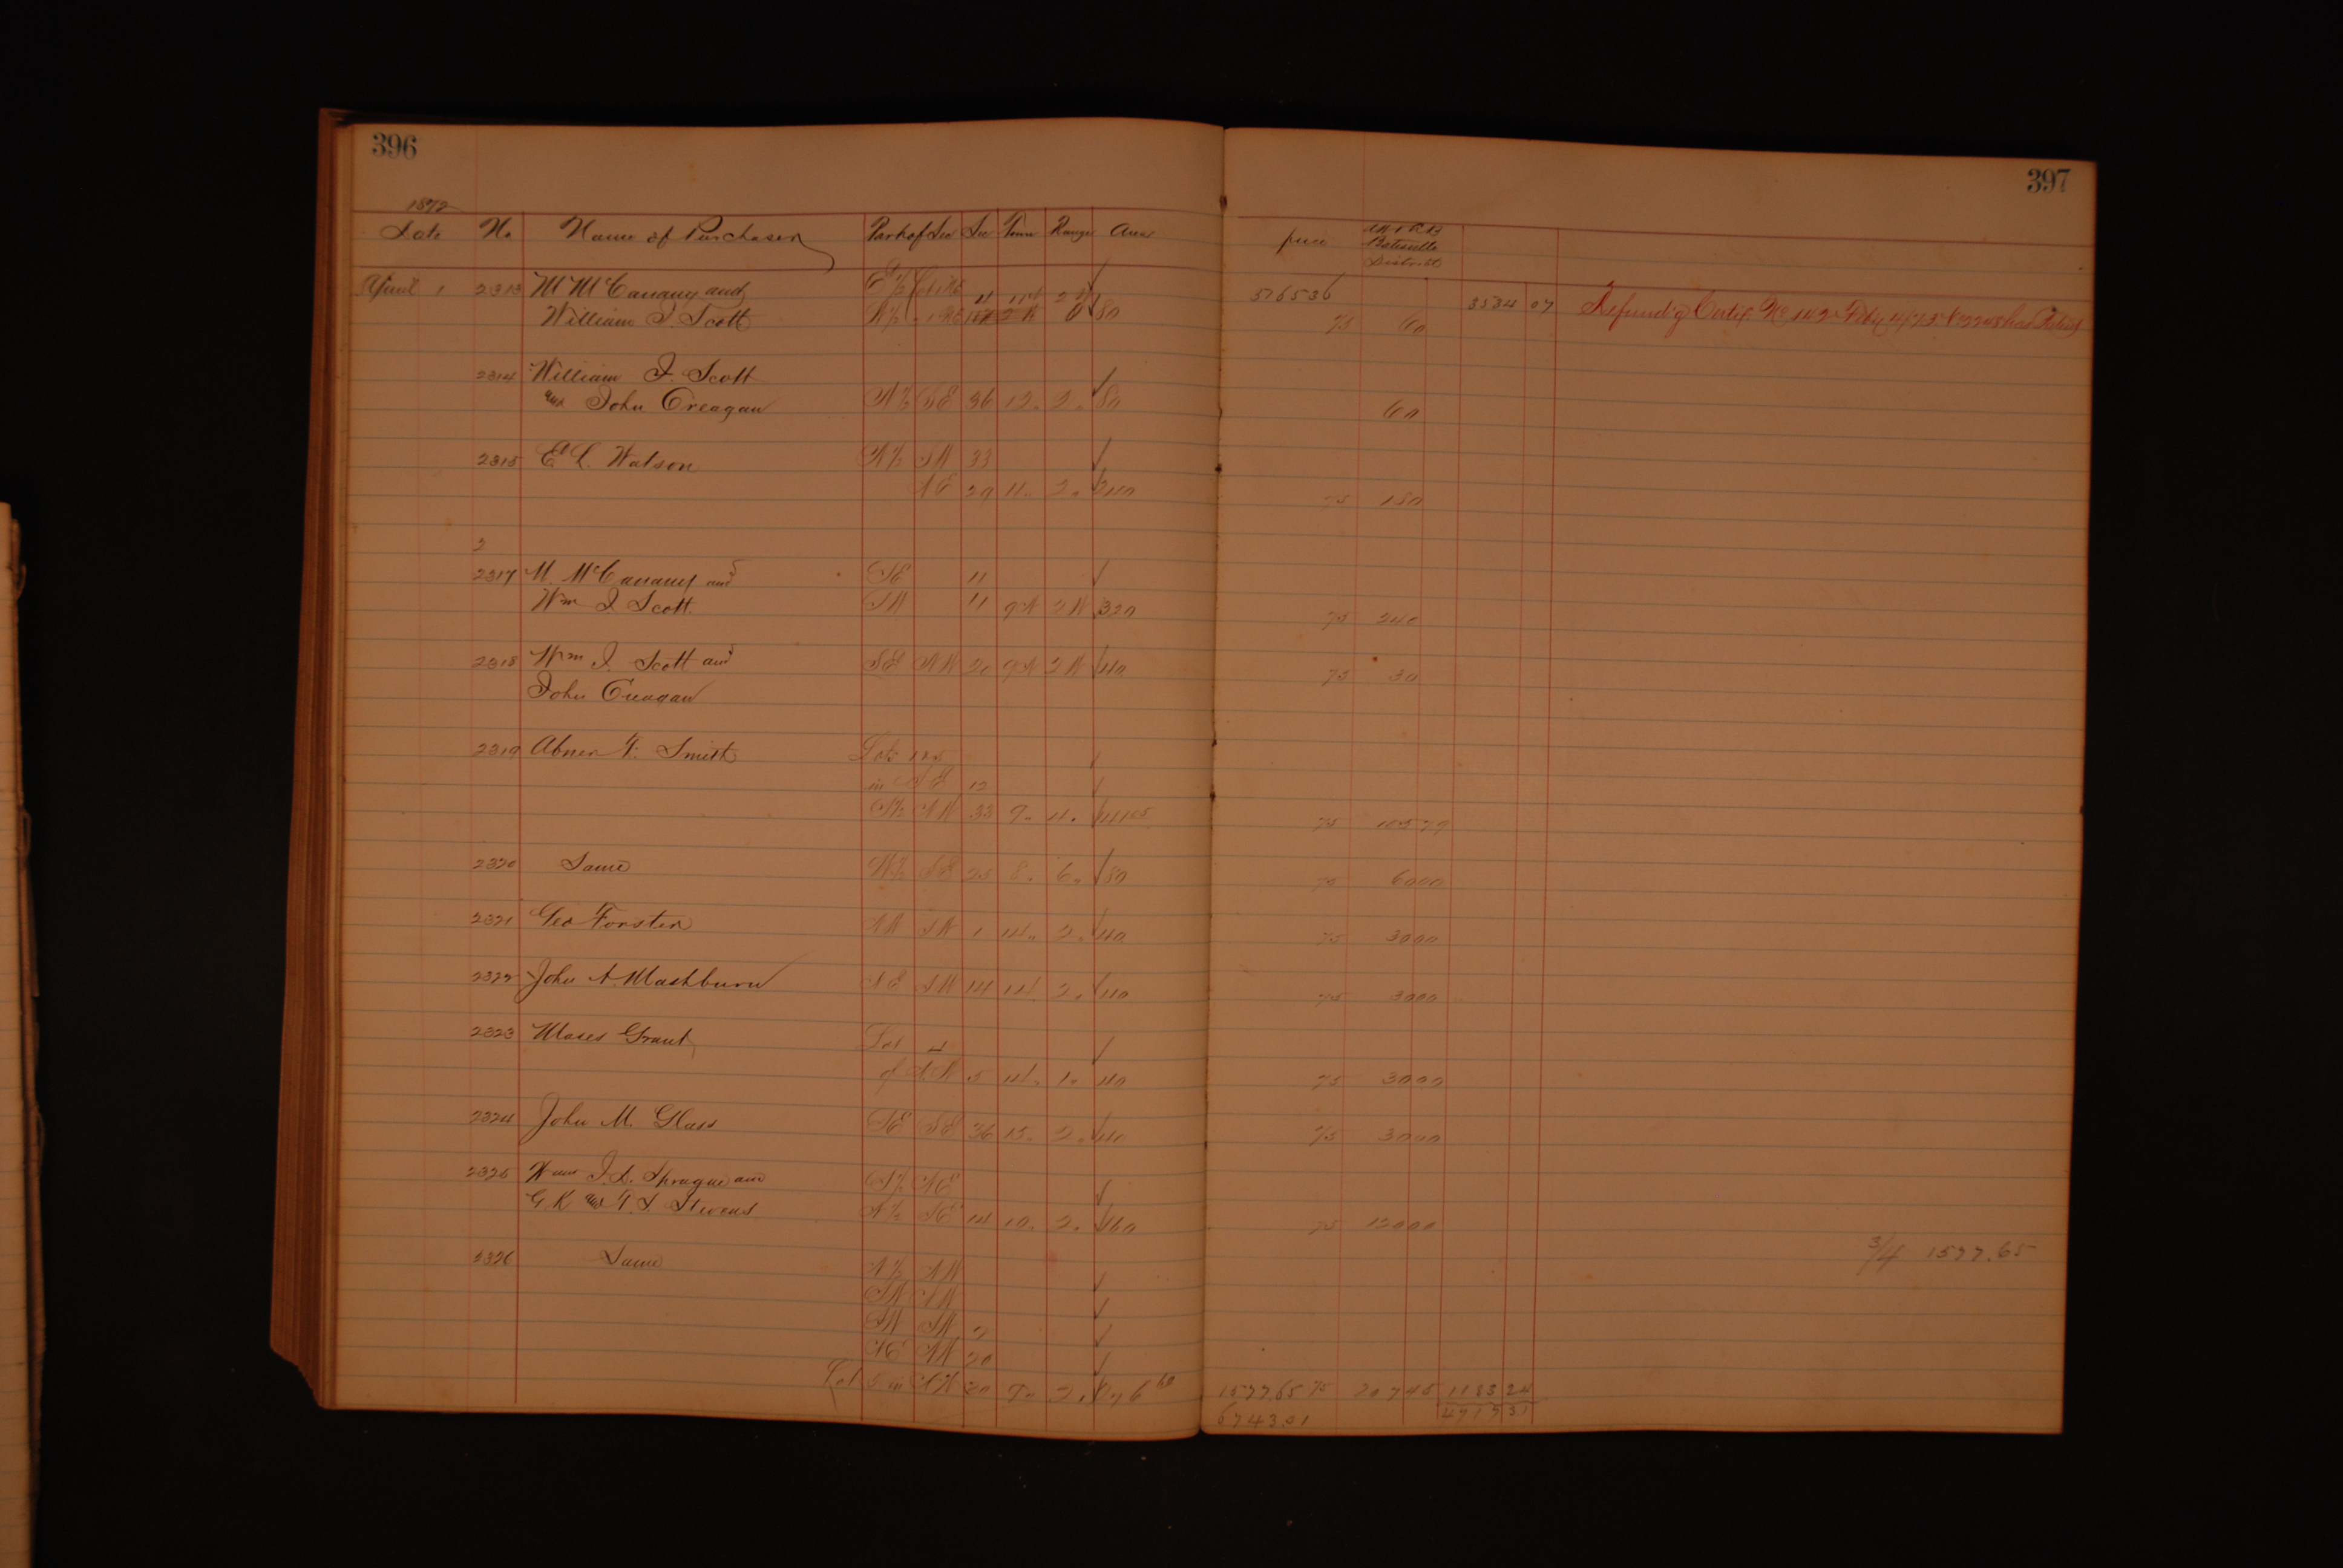 396
397
1872
Date No. Name of Purchaser Part of Sec Sec Town Range Acres price Batesville District
April 1 2313 M McCanany and E½ Lot 1 NE 4 11 N 2 5165 36 3534 07 Refund'g Certif. No 142
William J. Scott 80 75 60
2314 William J. Scott
and John Creagan N½ SE 36 12 " 2 " 80 60
2315 E. L. Watson N½ SW 33
NE 29 11 " 2 " 240 75 180
2
2317 M. McCanany and SE 11
Wm J Scott SW 11 9 N 2 W 320 75 240
2318 Wm J. Scott and SE NW 20 9 N 2 W 40 75 30
John Creagan
2319 Abner F. Smith Lots 1 &
in SE 12
S½ NW 33 9 " 4 " 75 105 79
2320 Same W½ SE 25 8 " 6 " 80 75 60 00
2321 Geo Forster NW SW 1 14 " 2 " 40 75 30 00
2322 John A. Washburn NE SW 14 14 " 2 " 40 75 30 00
2323 Moses Grant Lot 4
of 5 14 " 1 " 40 75 30 00
2324 John M. Glass SE SE 36 15 " 2 " 40 75 30 00
2325 Wm J. D. Sprague and S½ NE
G K and F. S. Stevens N½ SE 14 10 " 2 " 160 75 120 00
3/4 1577.65
2326 Same N½ NW
SW NW
SW SW
NE NW 20
Lot 5 in 30 9 " 2 " 276 60 1577.65 75 207 45 1183 24
6743.01 4717 31